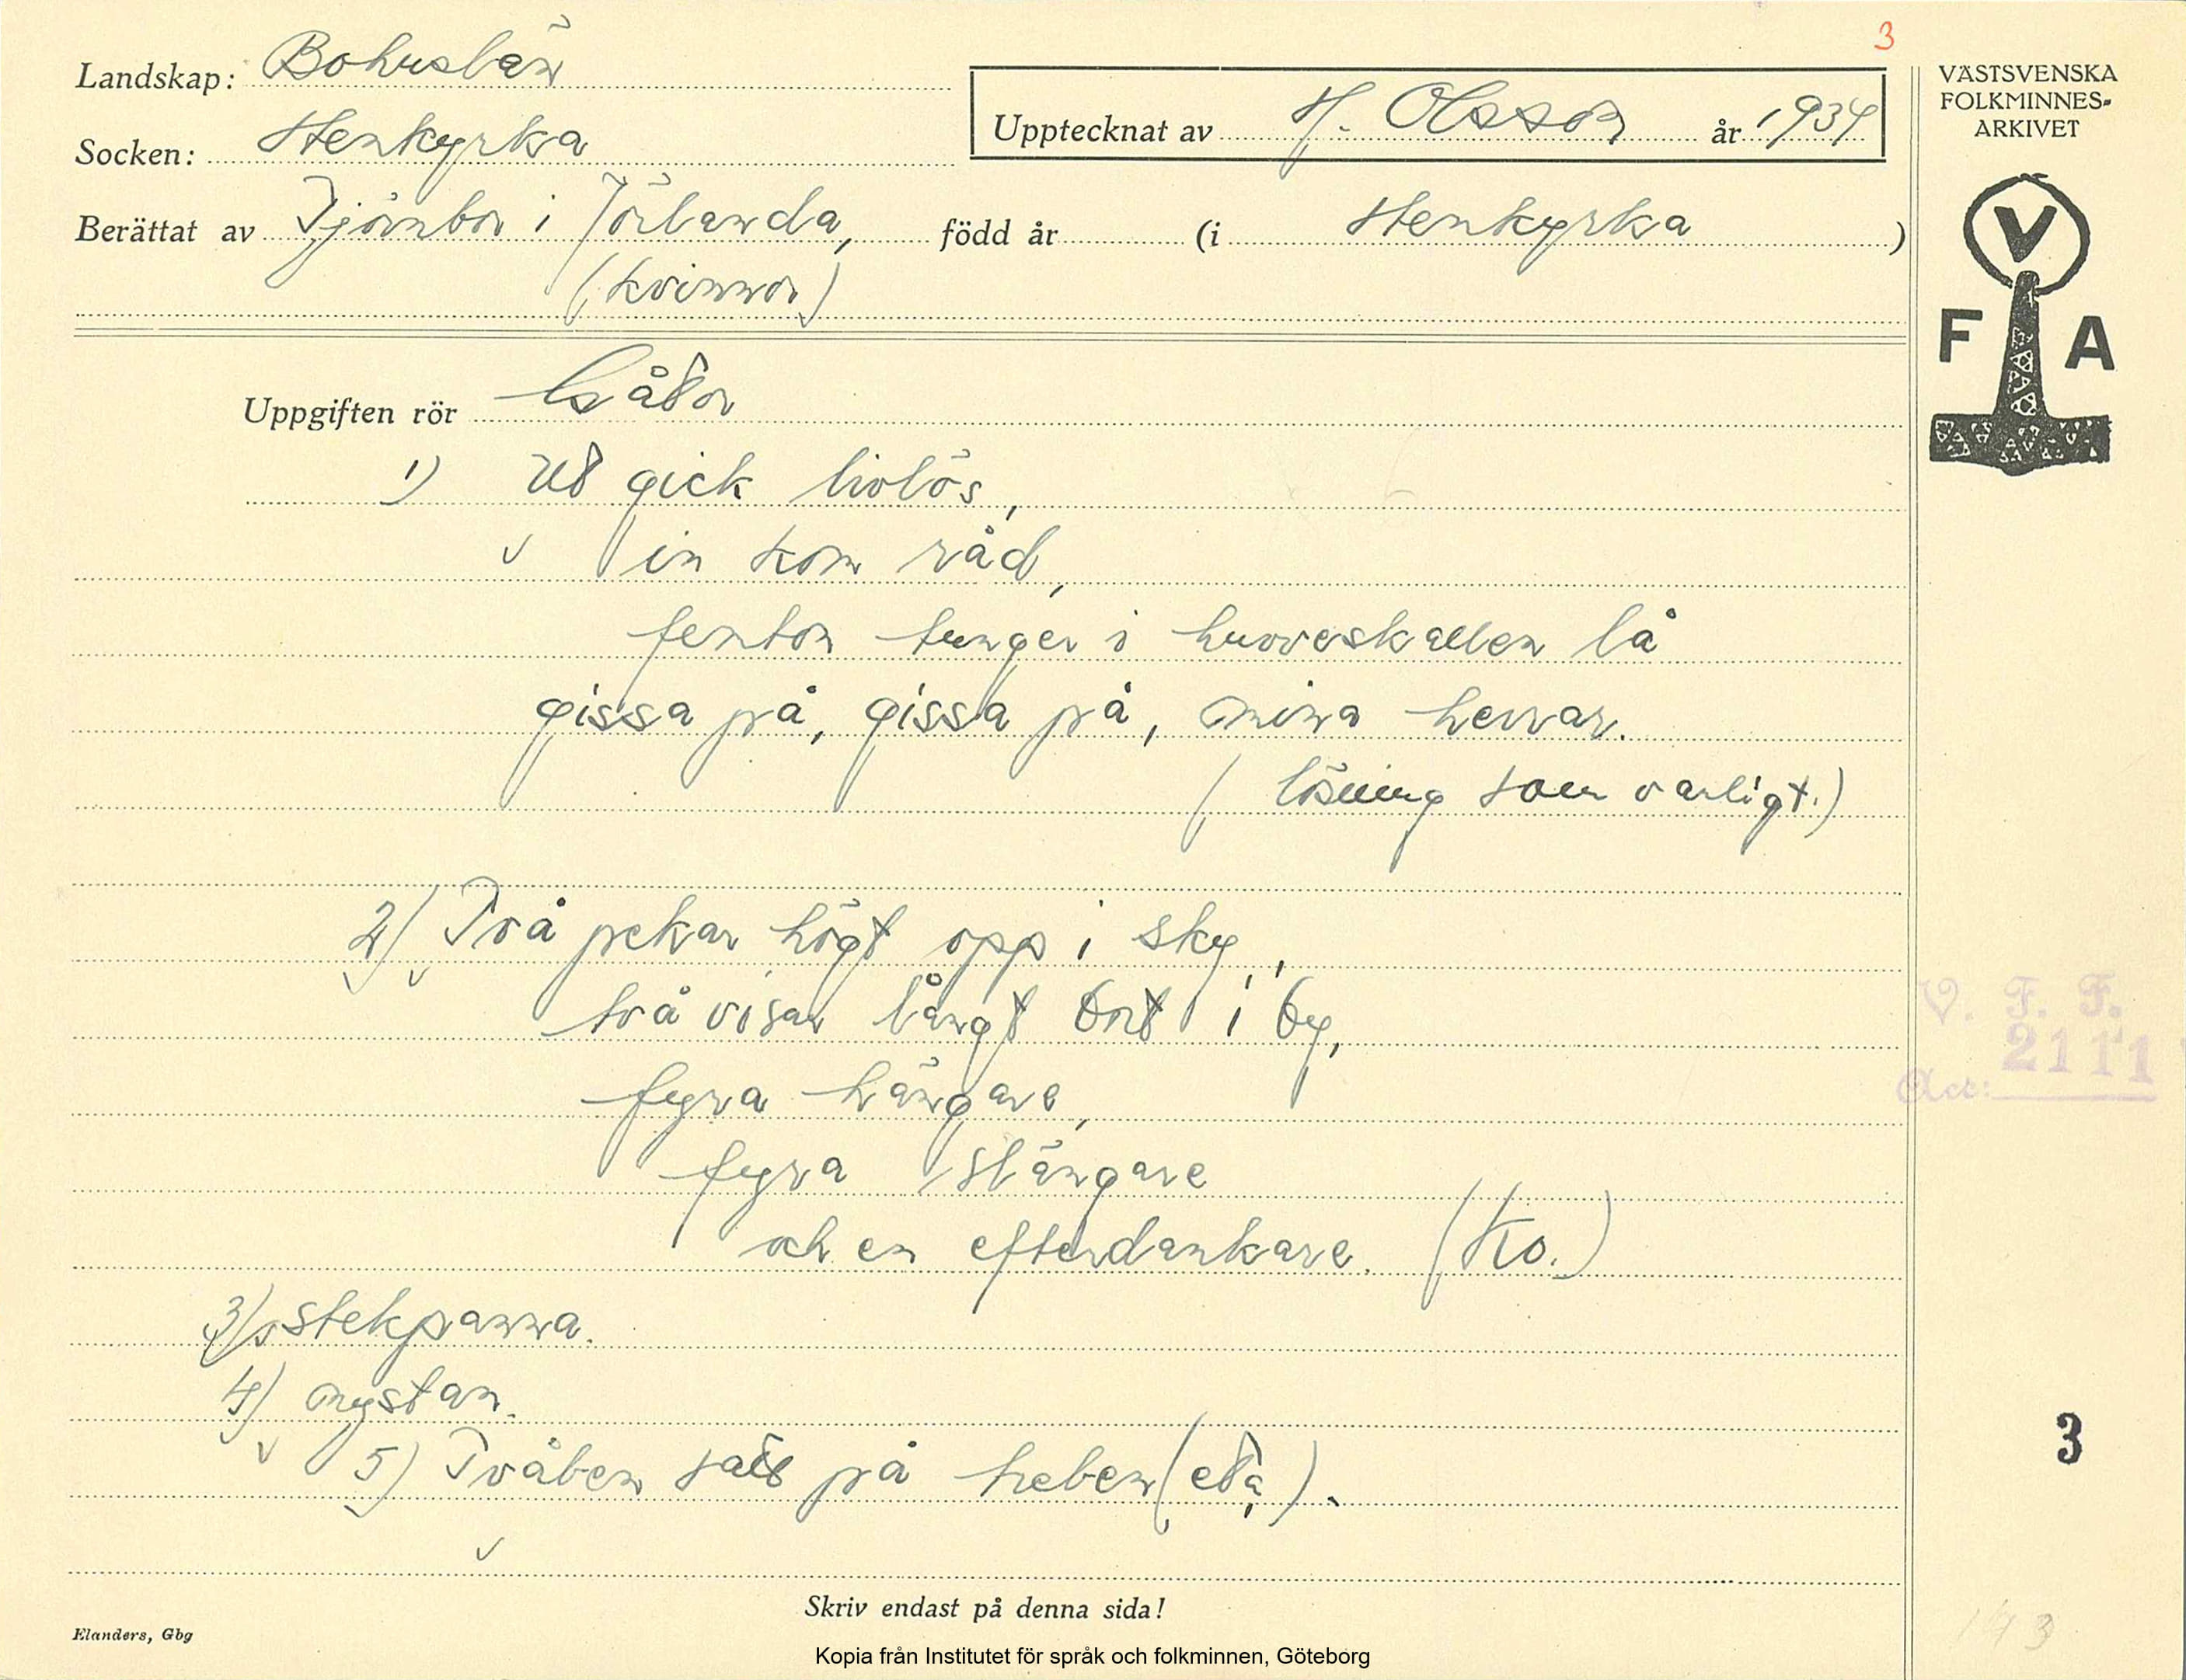 3
Landskap: Bohuslän
Socken: Stenkyrka
Upptecknat av H. Olsson år 1934
Berättat av Tjörnbor i Jörlanda, född år (i Stenkyrka)
(kvinnor)
VÄSTSVENSKA
FOLKMINNES-
ARKIVET
V
F A
Uppgiften rör Gåtor
1) Ut gick livlös,
in kom råd,
femton tunger i huveskallen lå
gissa på, gissa på, mina herrar.
(lösning som vanligt.)
2) Två pekar högt opp i sky,
två visar långt bort i by,
fyra hängare,
fyra slängare
och en efterdankare. (Ko.)
3) stekpanna.
4) nystan.
5) Tvåben satt på treben (etc.).
V. F. F.
2111
Acc:
3
Skriv endast på denna sida!
Elanders, Gbg
Kopia från Institutet för språk och folkminnen, Göteborg